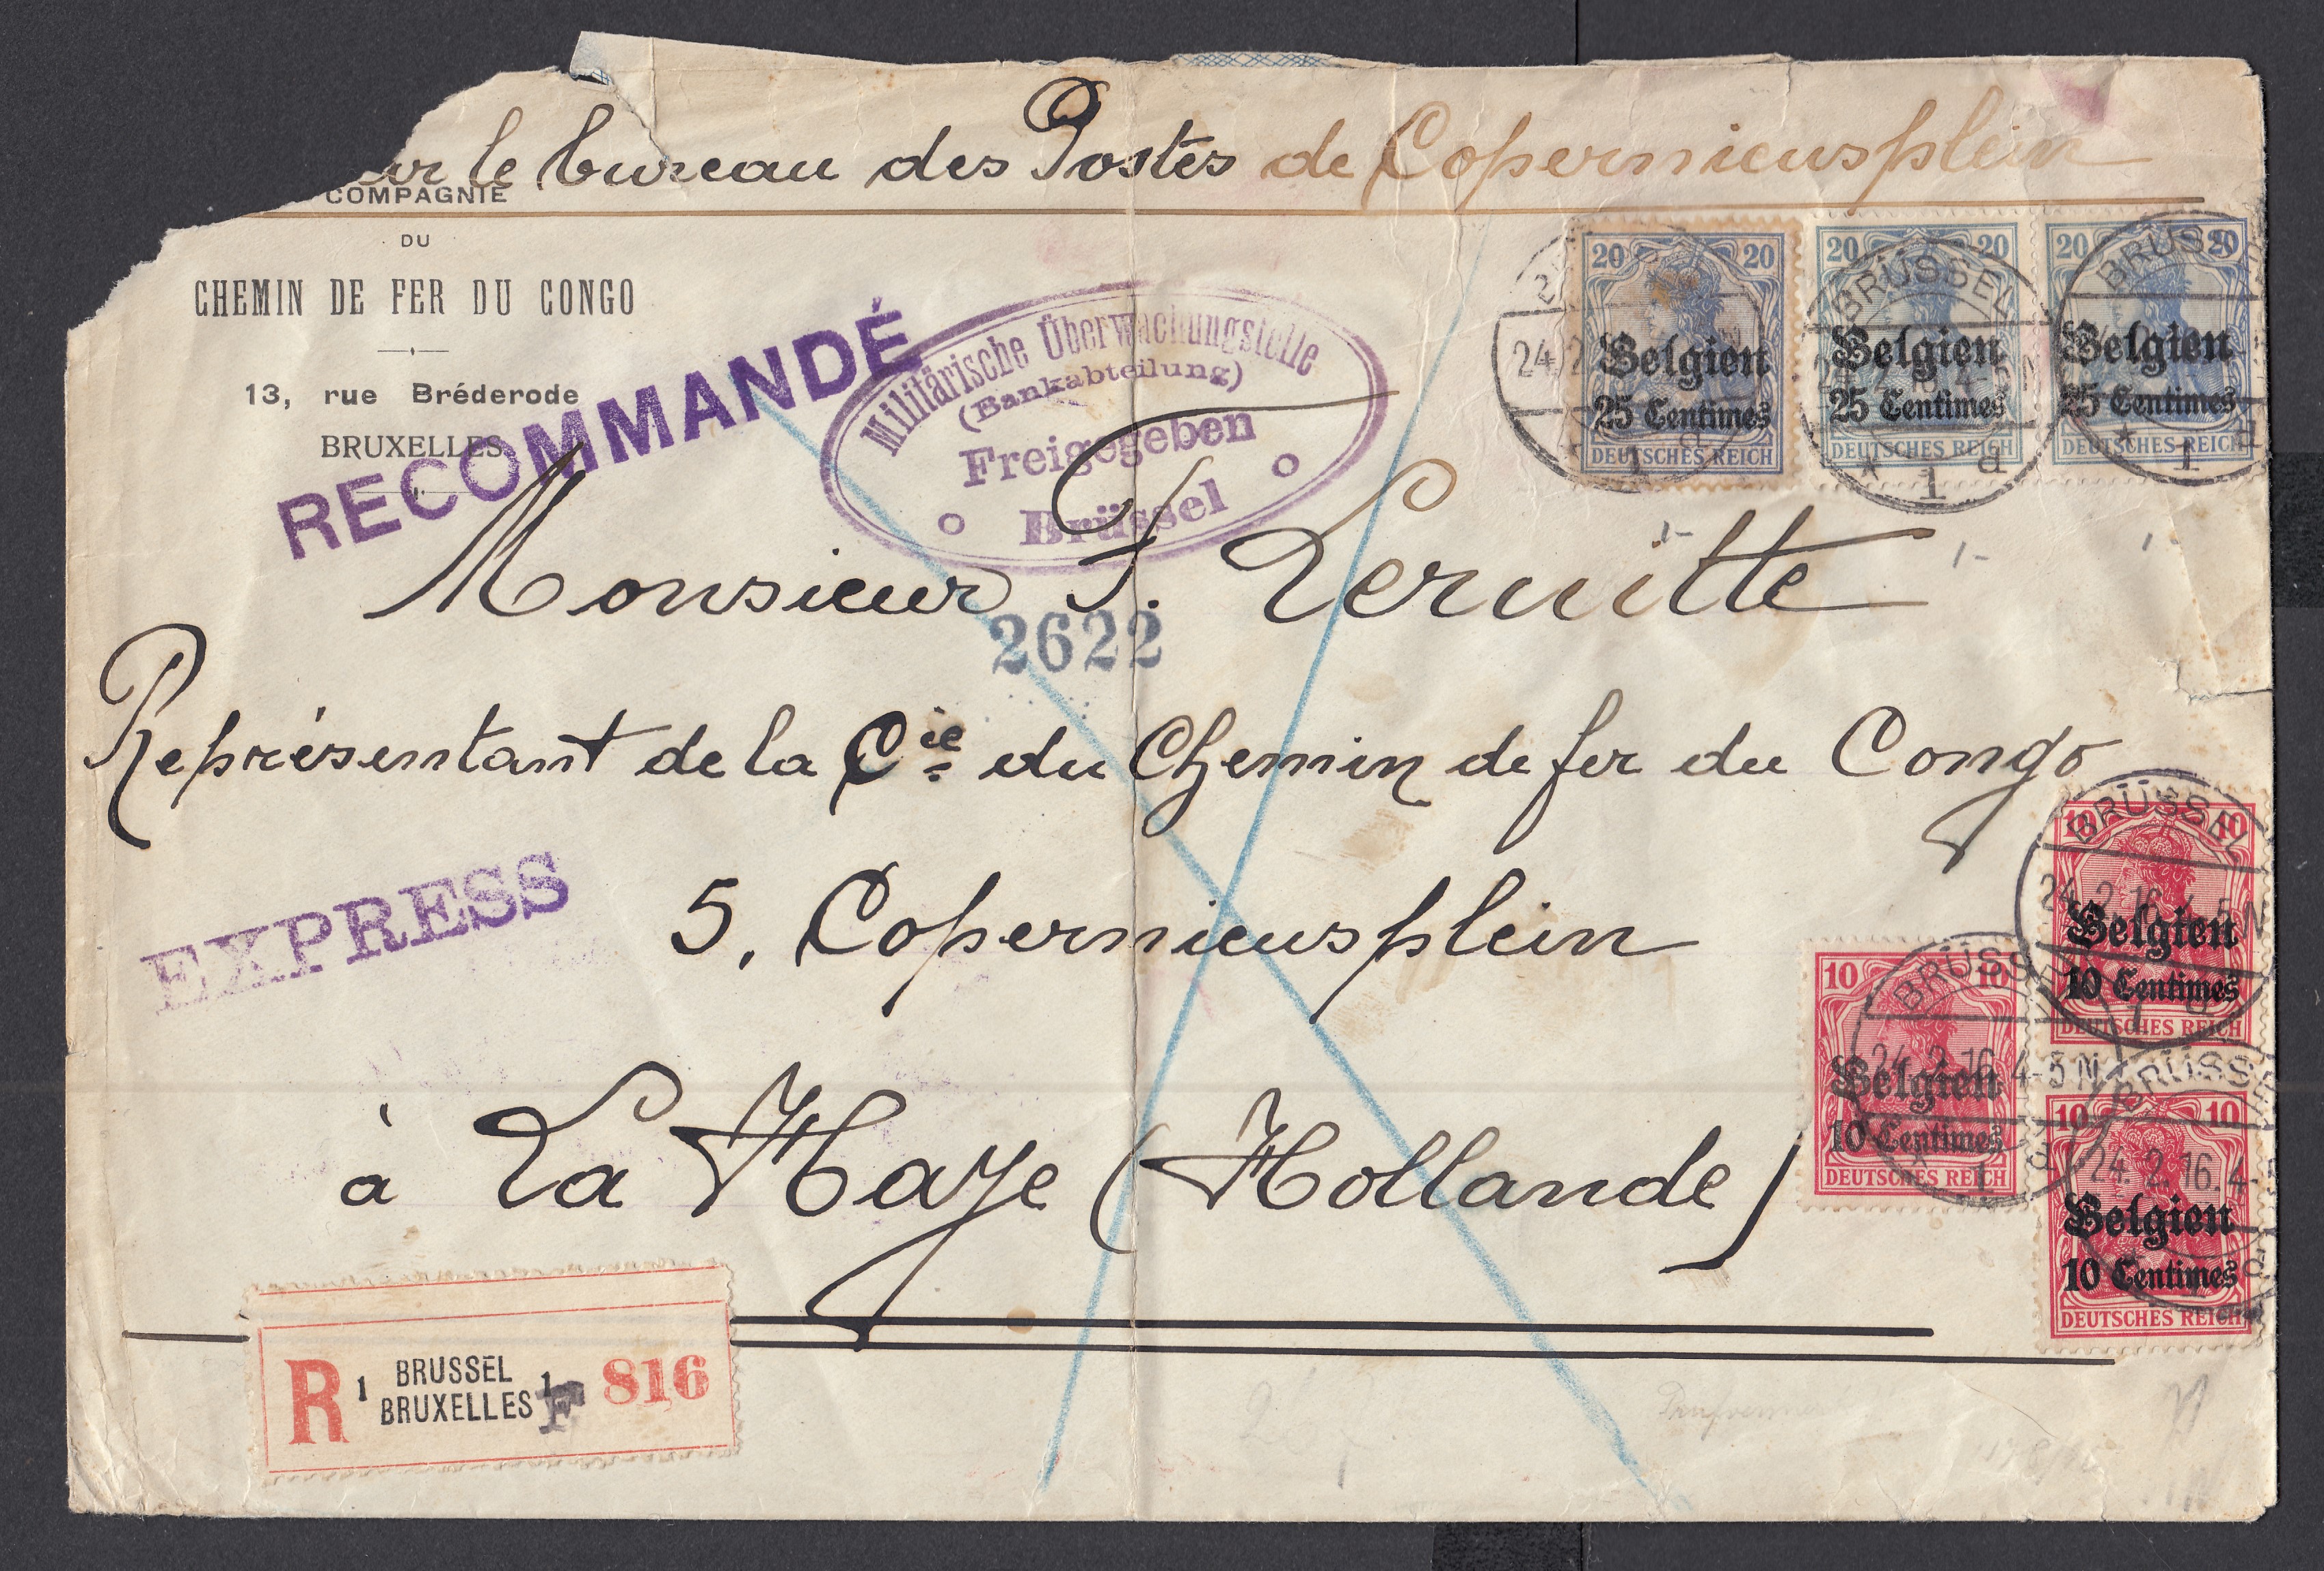 ur le bureau des Postes de Copernicusplein
COMPAGNIE
DU
CHEMIN DE FER DU CONGO
13, rue Bréderode
BRUXELLES
RECOMMANDÉ
Militärische Überwachungstelle
(Bankabteilung)
Freigegeben
Brüssel
20 20
Belgien
25 Centimes
DEUTSCHES REICH
20 20
Belgien
25 Centimes
DEUTSCHES REICH
20 20
Belgien
25 Centimes
DEUTSCHES REICH
BRÜSSEL
1 d
BRÜSSEL
1
Monsieur F. Leruitte
2622
Représentant de la Cie du Chemin de fer du Congo
EXPRESS
5, Copernicusplein
à La Haye (Hollande)
10 10
Belgien
10 Centimes
DEUTSCHES REICH
BRÜSSEL
24.2.16.4-5N
1 d
10 10
Belgien
10 Centimes
DEUTSCHES REICH
BRÜSSEL
24.2.16.4-5N
1 d
10 10
Belgien
10 Centimes
DEUTSCHES REICH
BRÜSSE
24.2.16.4-
R 1 BRUSSEL
BRUXELLES 1 F 816